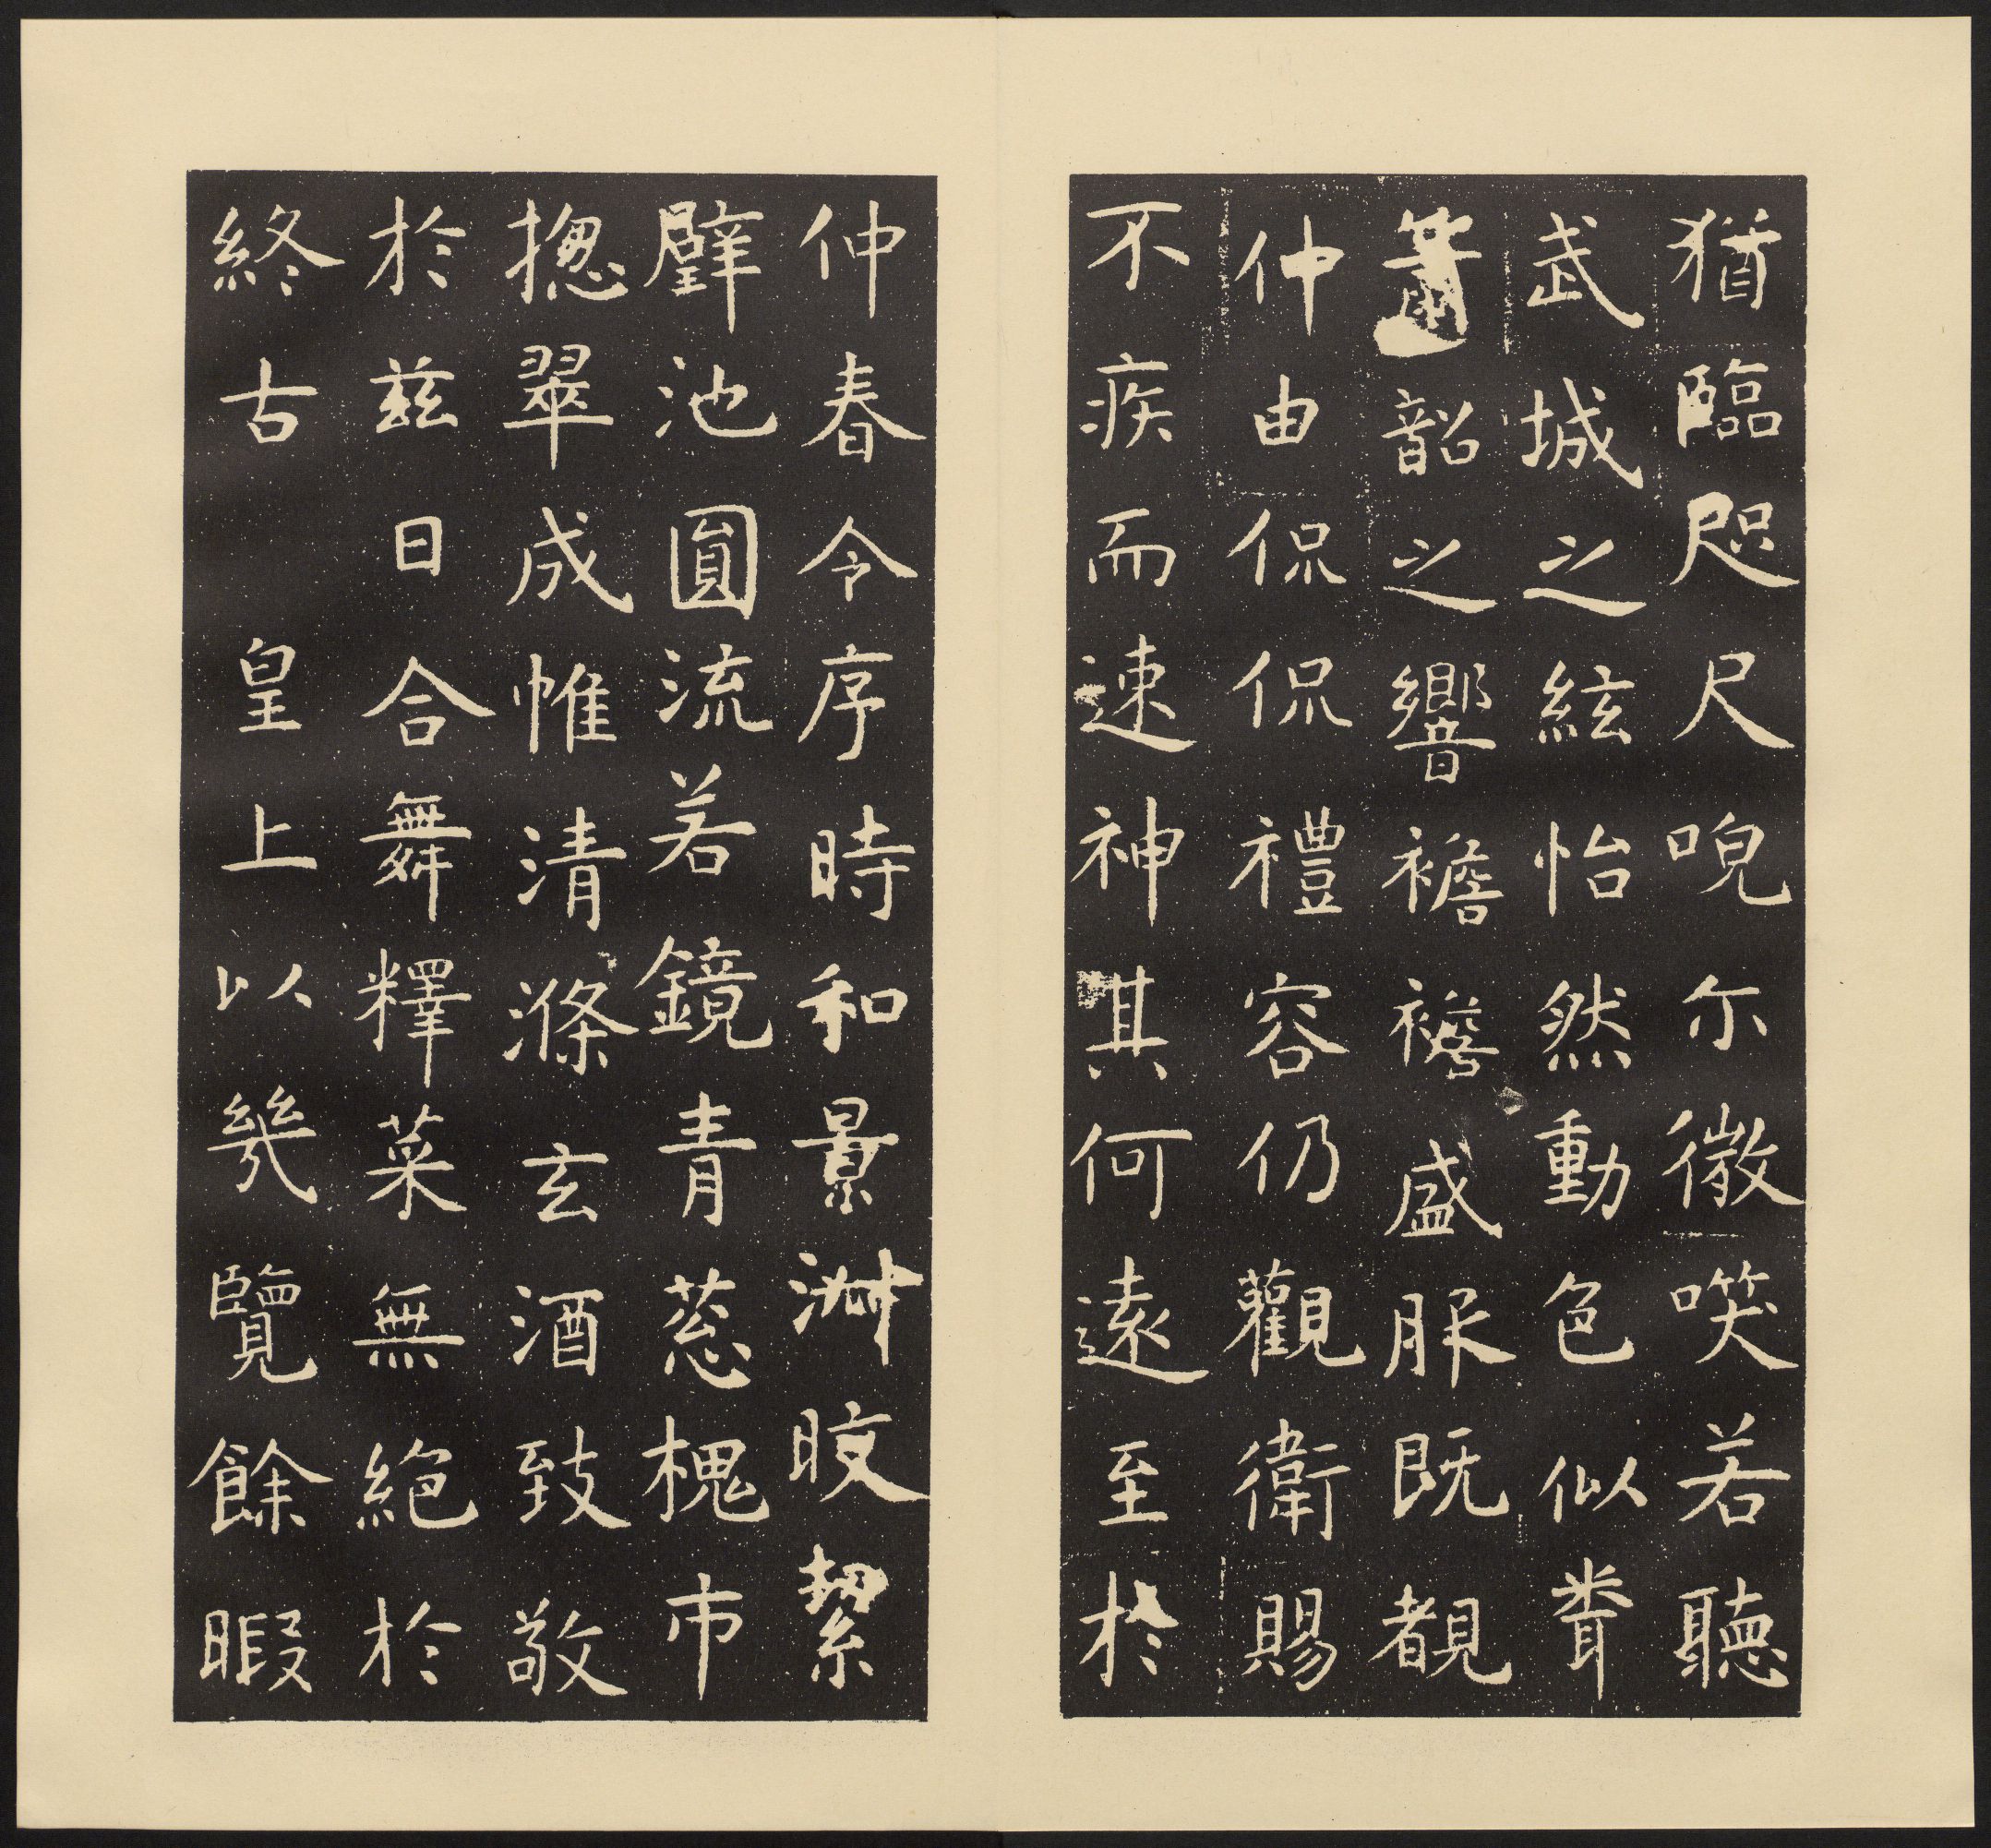 猶臨咫尺唲尒微咲若聽
武城之絃怡然動色似聋
簫韶之響襜襜盛服既覩
仲由侃侃禮容仍觀衛賜
不疾而速神其何遠至於
仲春令序時和景淑晈絜
璧池圓流若鏡青葱槐市
揔翠成帷清滌玄酒致敬
於兹日合舞釋菜無絶於
終古 皇上以幾覽餘暇